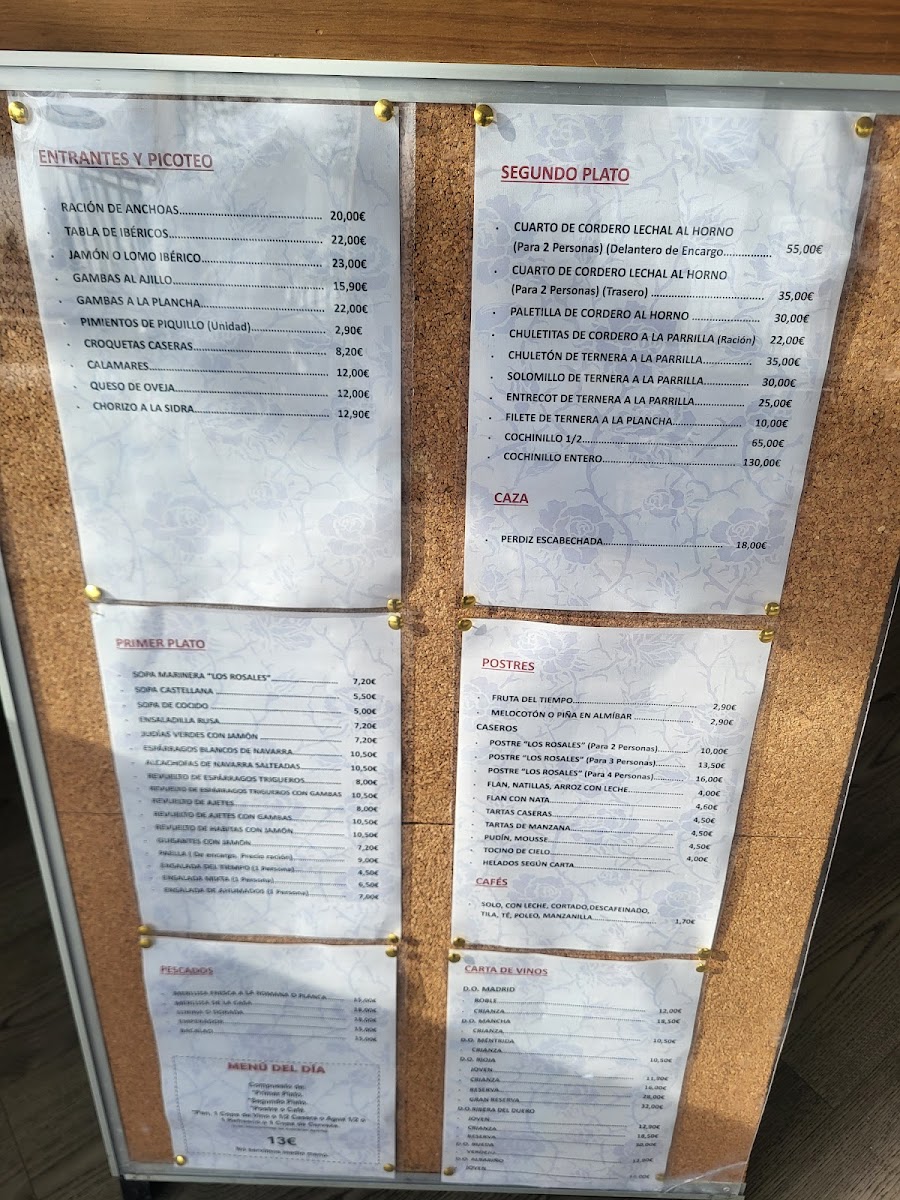 ENTRANTES Y PICOTEO
· RACIÓN DE ANCHOAS............ 20,00€
· TABLA DE IBÉRICOS............ 22,00€
· JAMÓN O LOMO IBÉRICO............ 23,00€
· GAMBAS AL AJILLO............ 15,90€
· GAMBAS A LA PLANCHA............ 22,00€
· PIMIENTOS DE PIQUILLO (Unidad)............ 2,90€
· CROQUETAS CASERAS............ 8,20€
· CALAMARES............ 12,00€
· QUESO DE OVEJA............ 12,00€
· CHORIZO A LA SIDRA............ 12,90€
SEGUNDO PLATO
· CUARTO DE CORDERO LECHAL AL HORNO
(Para 2 Personas) (Delantero de Encargo............ 55,00€
· CUARTO DE CORDERO LECHAL AL HORNO
(Para 2 Personas) (Trasero) ............ 35,00€
· PALETILLA DE CORDERO AL HORNO ............ 30,00€
· CHULETITAS DE CORDERO A LA PARRILLA (Ración) 22,00€
· CHULETÓN DE TERNERA A LA PARRILLA............ 35,00€
· SOLOMILLO DE TERNERA A LA PARRILLA............ 30,00€
· ENTRECOT DE TERNERA A LA PARRILLA............ 25,00€
· FILETE DE TERNERA A LA PLANCHA............ 10,00€
· COCHINILLO 1/2............ 65,00€
· COCHINILLO ENTERO............ 130,00€
CAZA
· PERDIZ ESCABECHADA............ 18,00€
PRIMER PLATO
· SOPA MARINERA "LOS ROSALES"............ 7,20€
· SOPA CASTELLANA ............ 5,50€
· SOPA DE COCIDO ............ 5,00€
· ENSALADILLA RUSA............ 7,20€
· JUDÍAS VERDES CON JAMÓN............ 7,20€
· ESPÁRRAGOS BLANCOS DE NAVARRA............ 10,50€
· ALCACHOFAS DE NAVARRA SALTEADAS............ 10,50€
· REVUELTO DE ESPÁRRAGOS TRIGUEROS............ 8,00€
· REVUELTO DE ESPÁRRAGOS TRIGUEROS CON GAMBAS 10,50€
· REVUELTO DE AJETES............ 8,00€
· REVUELTO DE AJETES CON GAMBAS............ 10,50€
· REVUELTO DE HABITAS CON JAMÓN............ 10,50€
· GUISANTES CON JAMÓN............ 7,20€
· PAELLA ( De encargo. Precio ración)............ 9,00€
· ENSALADA DEL TIEMPO (1 Persona)............ 4,50€
· ENSALADA MIXTA (1 Persona)............ 6,50€
· ENSALADA DE AHUMADOS (1 Persona)............ 7,00€
POSTRES
· FRUTA DEL TIEMPO............ 2,90€
· MELOCOTÓN O PIÑA EN ALMÍBAR ............ 2,90€
CASEROS
· POSTRE "LOS ROSALES" (Para 2 Personas)............ 10,00€
· POSTRE "LOS ROSALES" (Para 3 Personas)............ 13,50€
· POSTRE "LOS ROSALES" (Para 4 Personas)............ 16,00€
· FLAN, NATILLAS, ARROZ CON LECHE............ 4,00€
· FLAN CON NATA............ 4,60€
· TARTAS CASERAS............ 4,50€
· TARTAS DE MANZANA............ 4,50€
· PUDÍN, MOUSSE............ 4,50€
· TOCINO DE CIELO............ 4,00€
· HELADOS SEGÚN CARTA............
CAFÉS
· SOLO, CON LECHE, CORTADO,DESCAFEINADO,
TILA, TÉ, POLEO, MANZANILLA............ 1,70€
PESCADOS
· MERLUZA FRESCA A LA ROMANA O PLANCA
· MERLUZA DE LA CASA
· DORADA
· EMPERADOR
· BACALAO
MENÚ DEL DÍA
Compuesto de:
*Primer Plato.
*Segundo Plato.
*Postre o Café.
*Pan, 1 Copa de Vino o 1/2 Casera o Agua 1/2 o
1 Refresco o 1 Copa de Cerveza.
13€
No servimos medio menú.
CARTA DE VINOS
D.O. MADRID
· ROBLE............ 12,00€
· CRIANZA............ 18,50€
D.O. MANCHA
· CRIANZA............ 10,50€
D.O. MÉNTRIDA
· CRIANZA............ 10,50€
D.O. RIOJA
· JOVEN............ 11,90€
· CRIANZA............ 16,00€
· RESERVA............ 28,00€
· GRAN RESERVA............ 32,00€
D.O.RIBERA DEL DUERO
· JOVEN............ 12,90€
· CRIANZA............ 18,50€
· RESERVA............ 30,00€
D.O. RUEDA
· VERDEJO............
D.O. ALBARIÑO
· JOVEN............